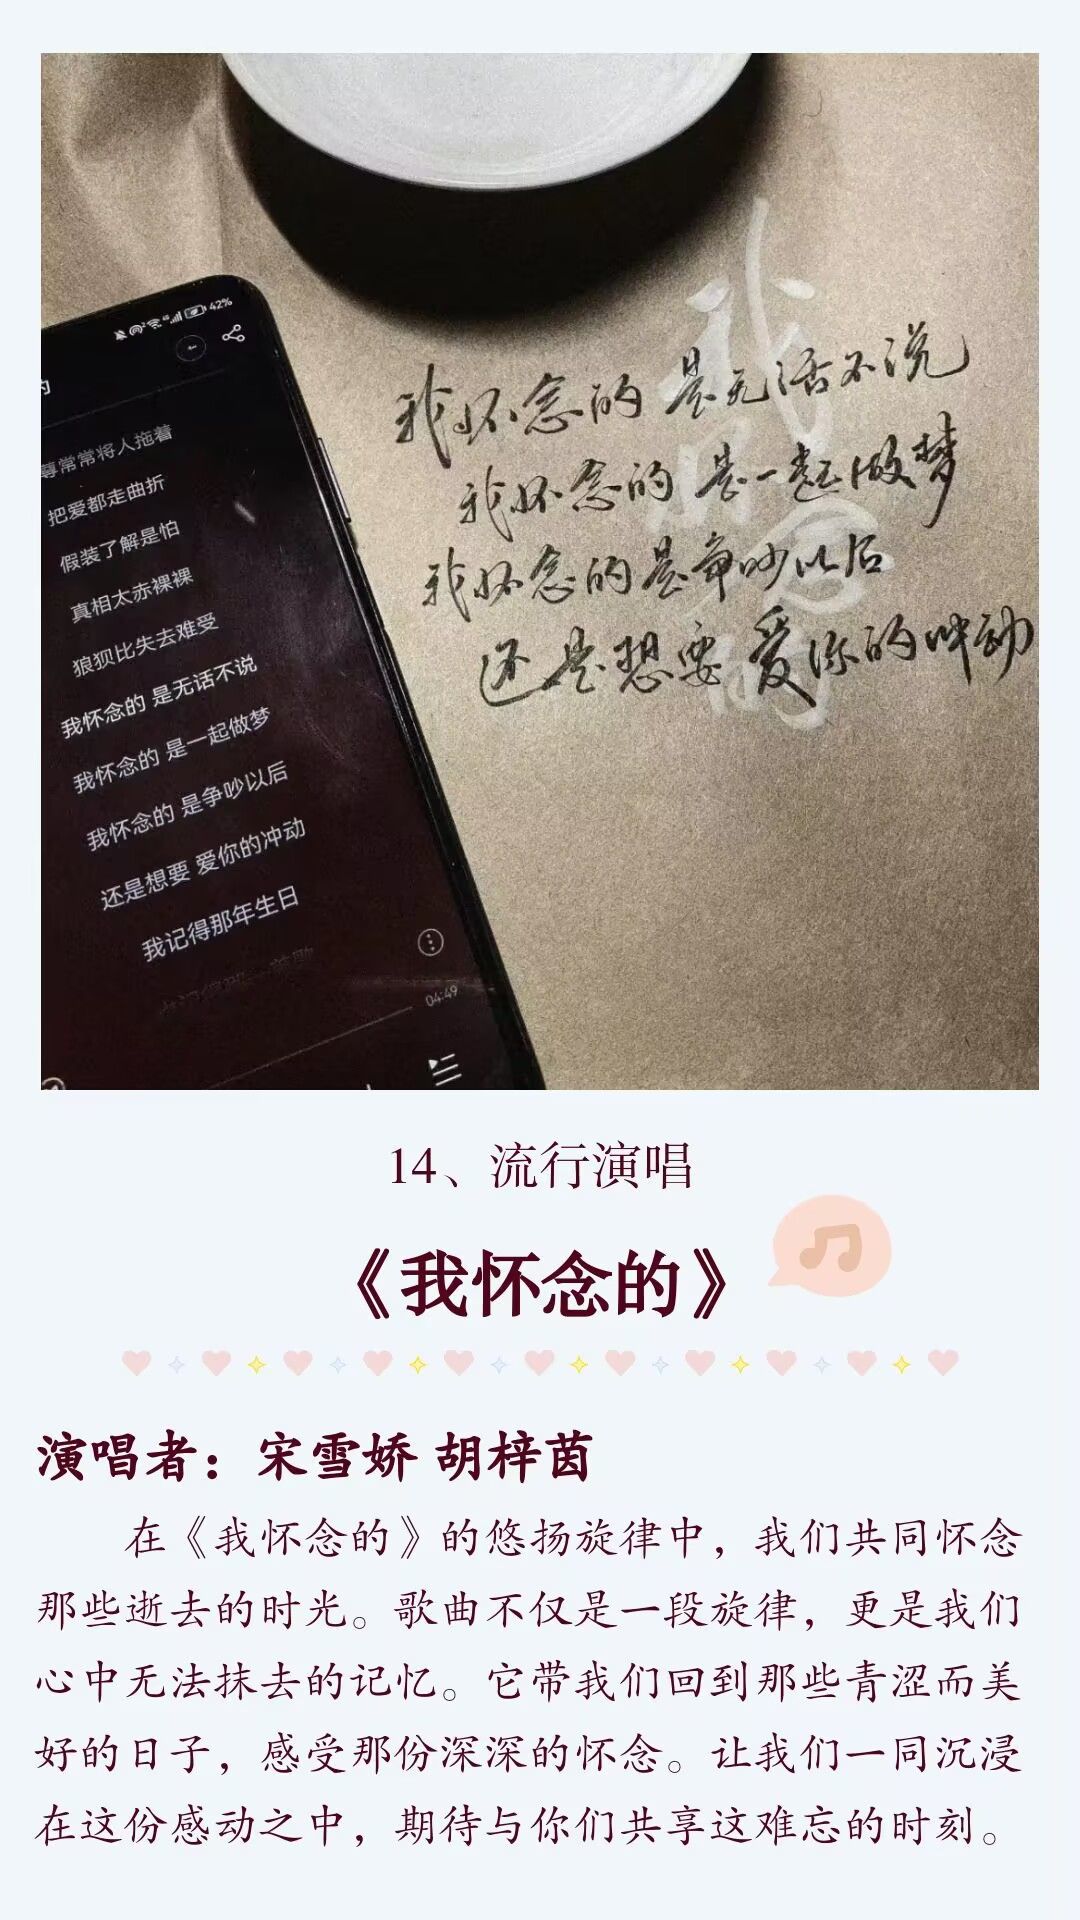 42%
尊常常将人拖着
把爱都走曲折
假装了解是怕
真相太赤裸裸
狼狈比失去难受
我怀念的 是无话不说
我怀念的 是一起做梦
我怀念的 是争吵以后
还是想要 爱你的冲动
我记得那年生日
04:49
我怀念的
我怀念的 是无话不说
我怀念的 是一起做梦
我怀念的 是争吵以后
还是想要 爱你的冲动
14、流行演唱
《我怀念的》
演唱者：宋雪娇 胡梓茵
在《我怀念的》的悠扬旋律中，我们共同怀念
那些逝去的时光。歌曲不仅是一段旋律，更是我们
心中无法抹去的记忆。它带我们回到那些青涩而美
好的日子，感受那份深深的怀念。让我们一同沉浸
在这份感动之中，期待与你们共享这难忘的时刻。